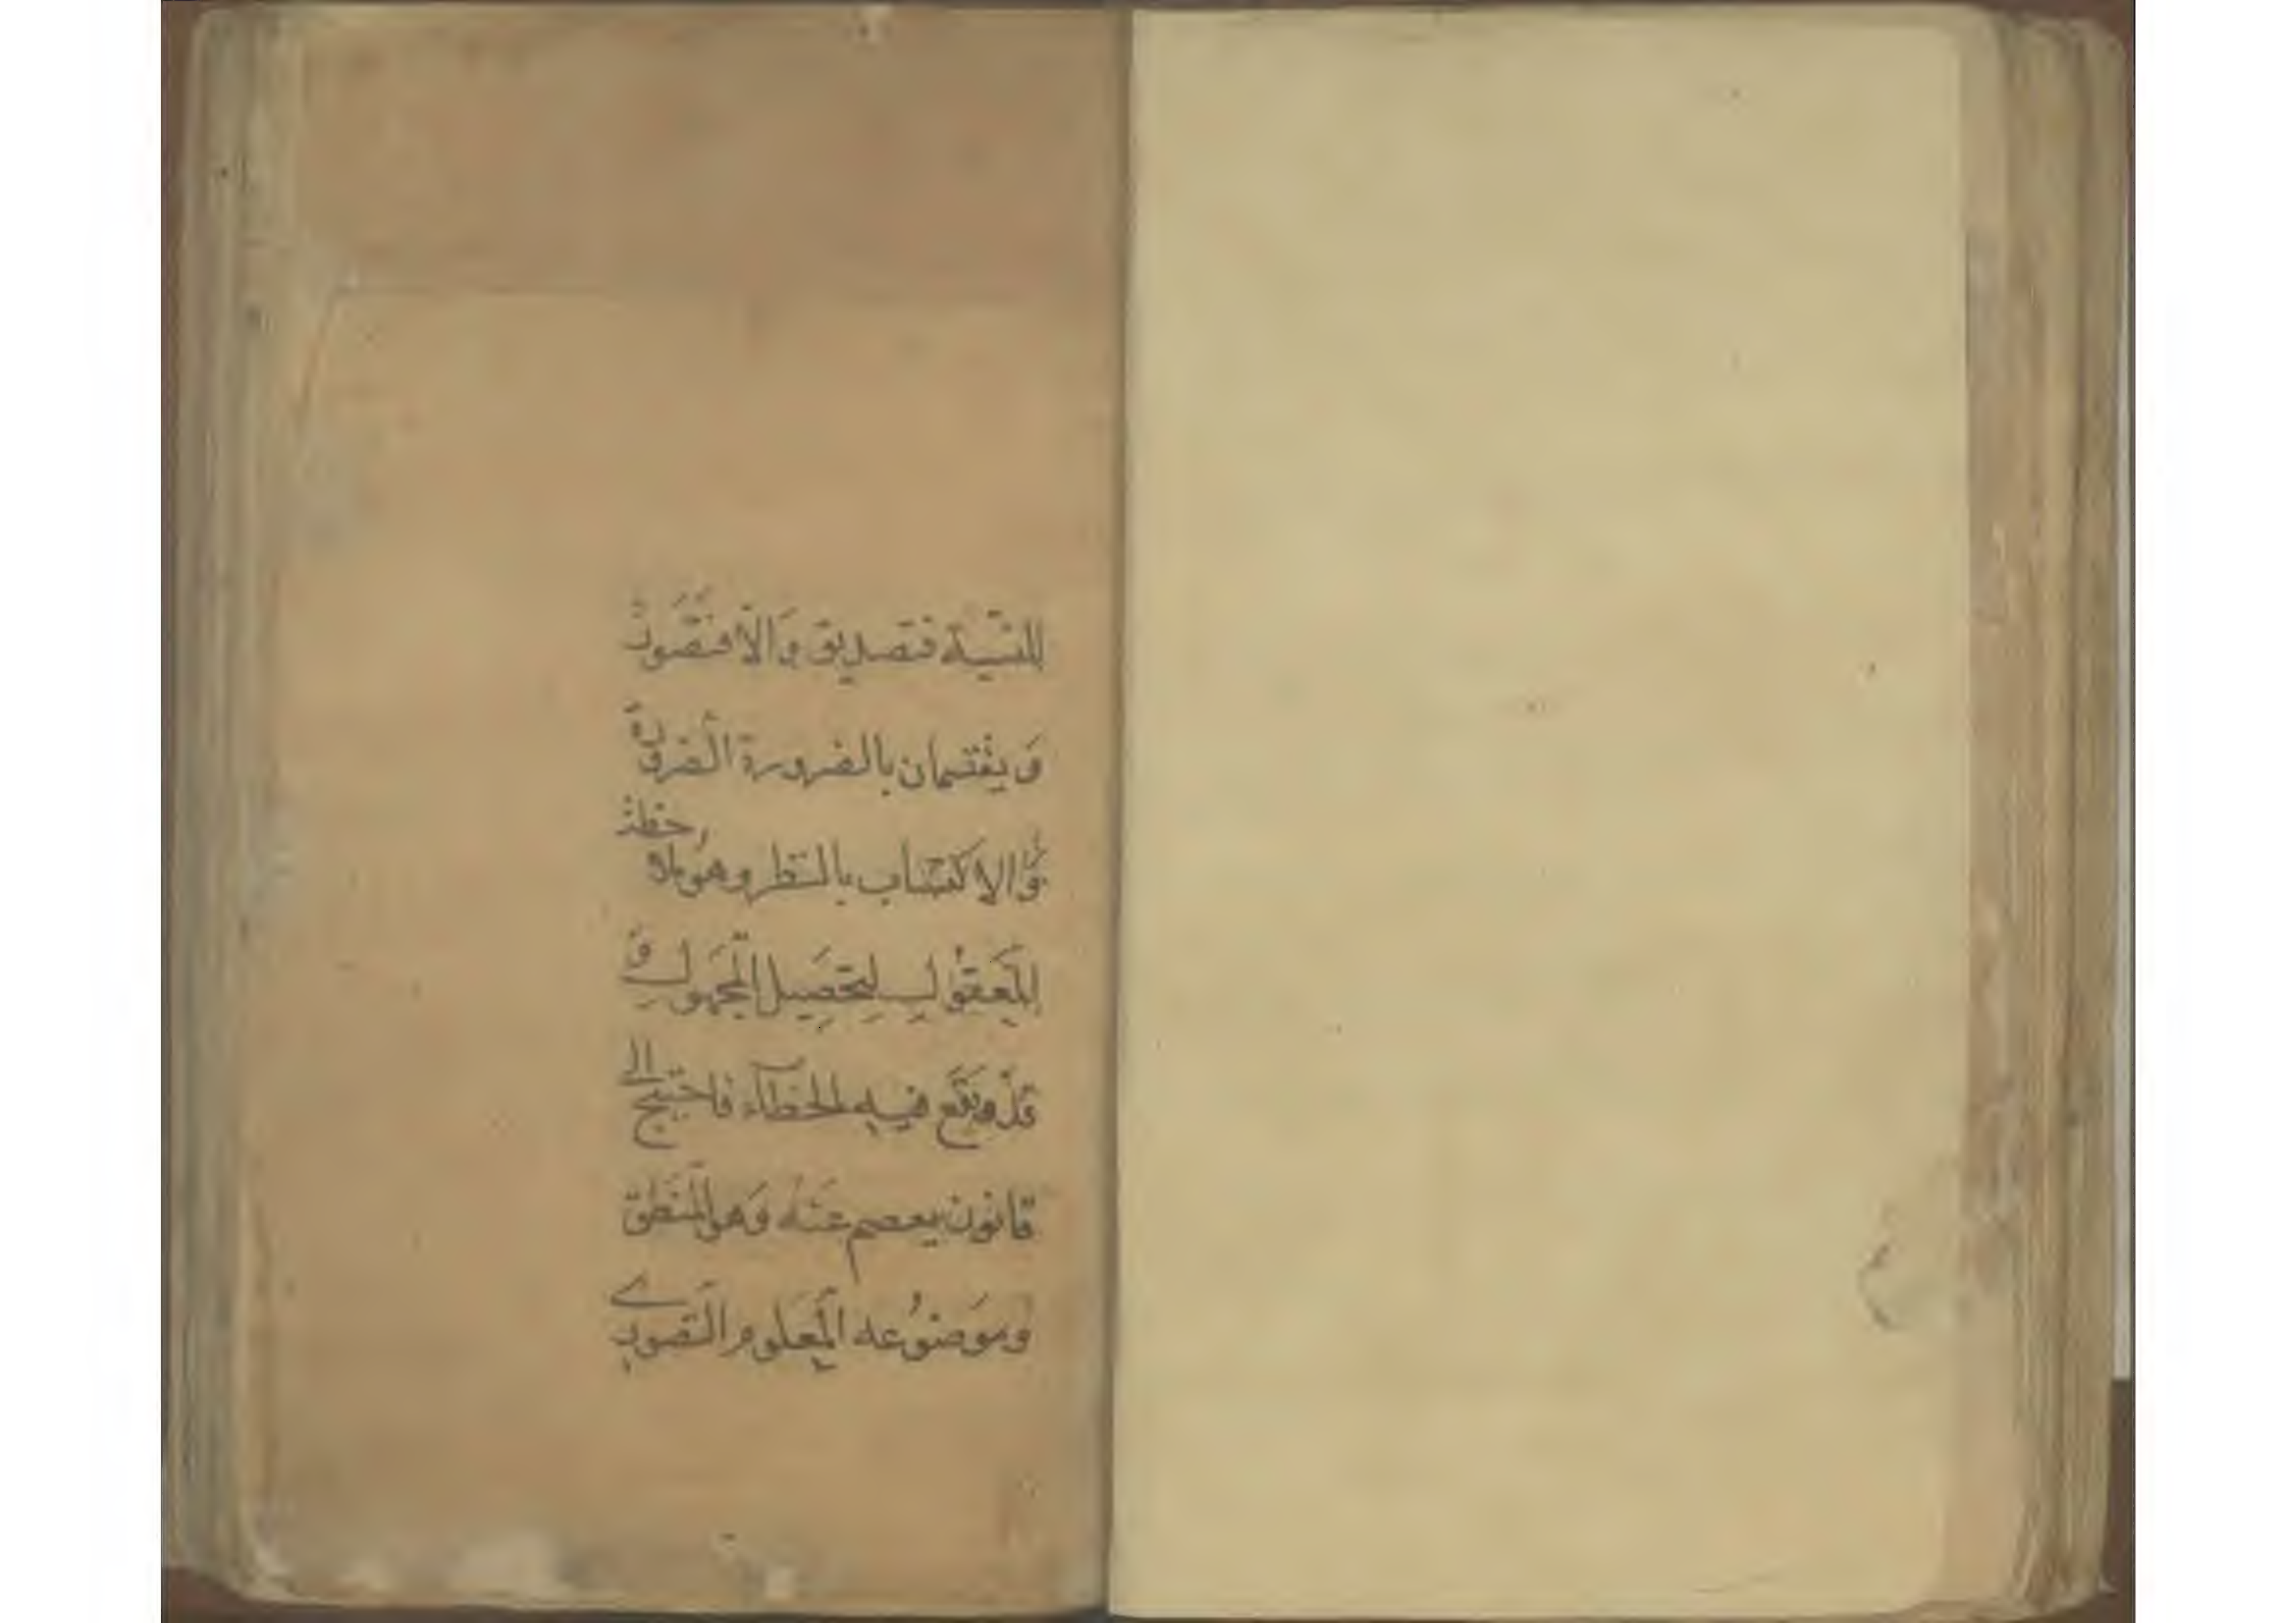 للنسبة فتصديق وَالّا فتَصَورٌ
وَ يقْتسمان بالضرورة الضّرورةَ
وَالاكتساب بالنظر وهو ملاحظة
المَعقوْلِ لِتحصِيل المَجهَولِ وَ
قدْ يقَع فيه الخطآء فاحتيج الى
قانون يعصم عَنْه وَهو المنَطق
وموَضوُعه المَعلوم التصوري